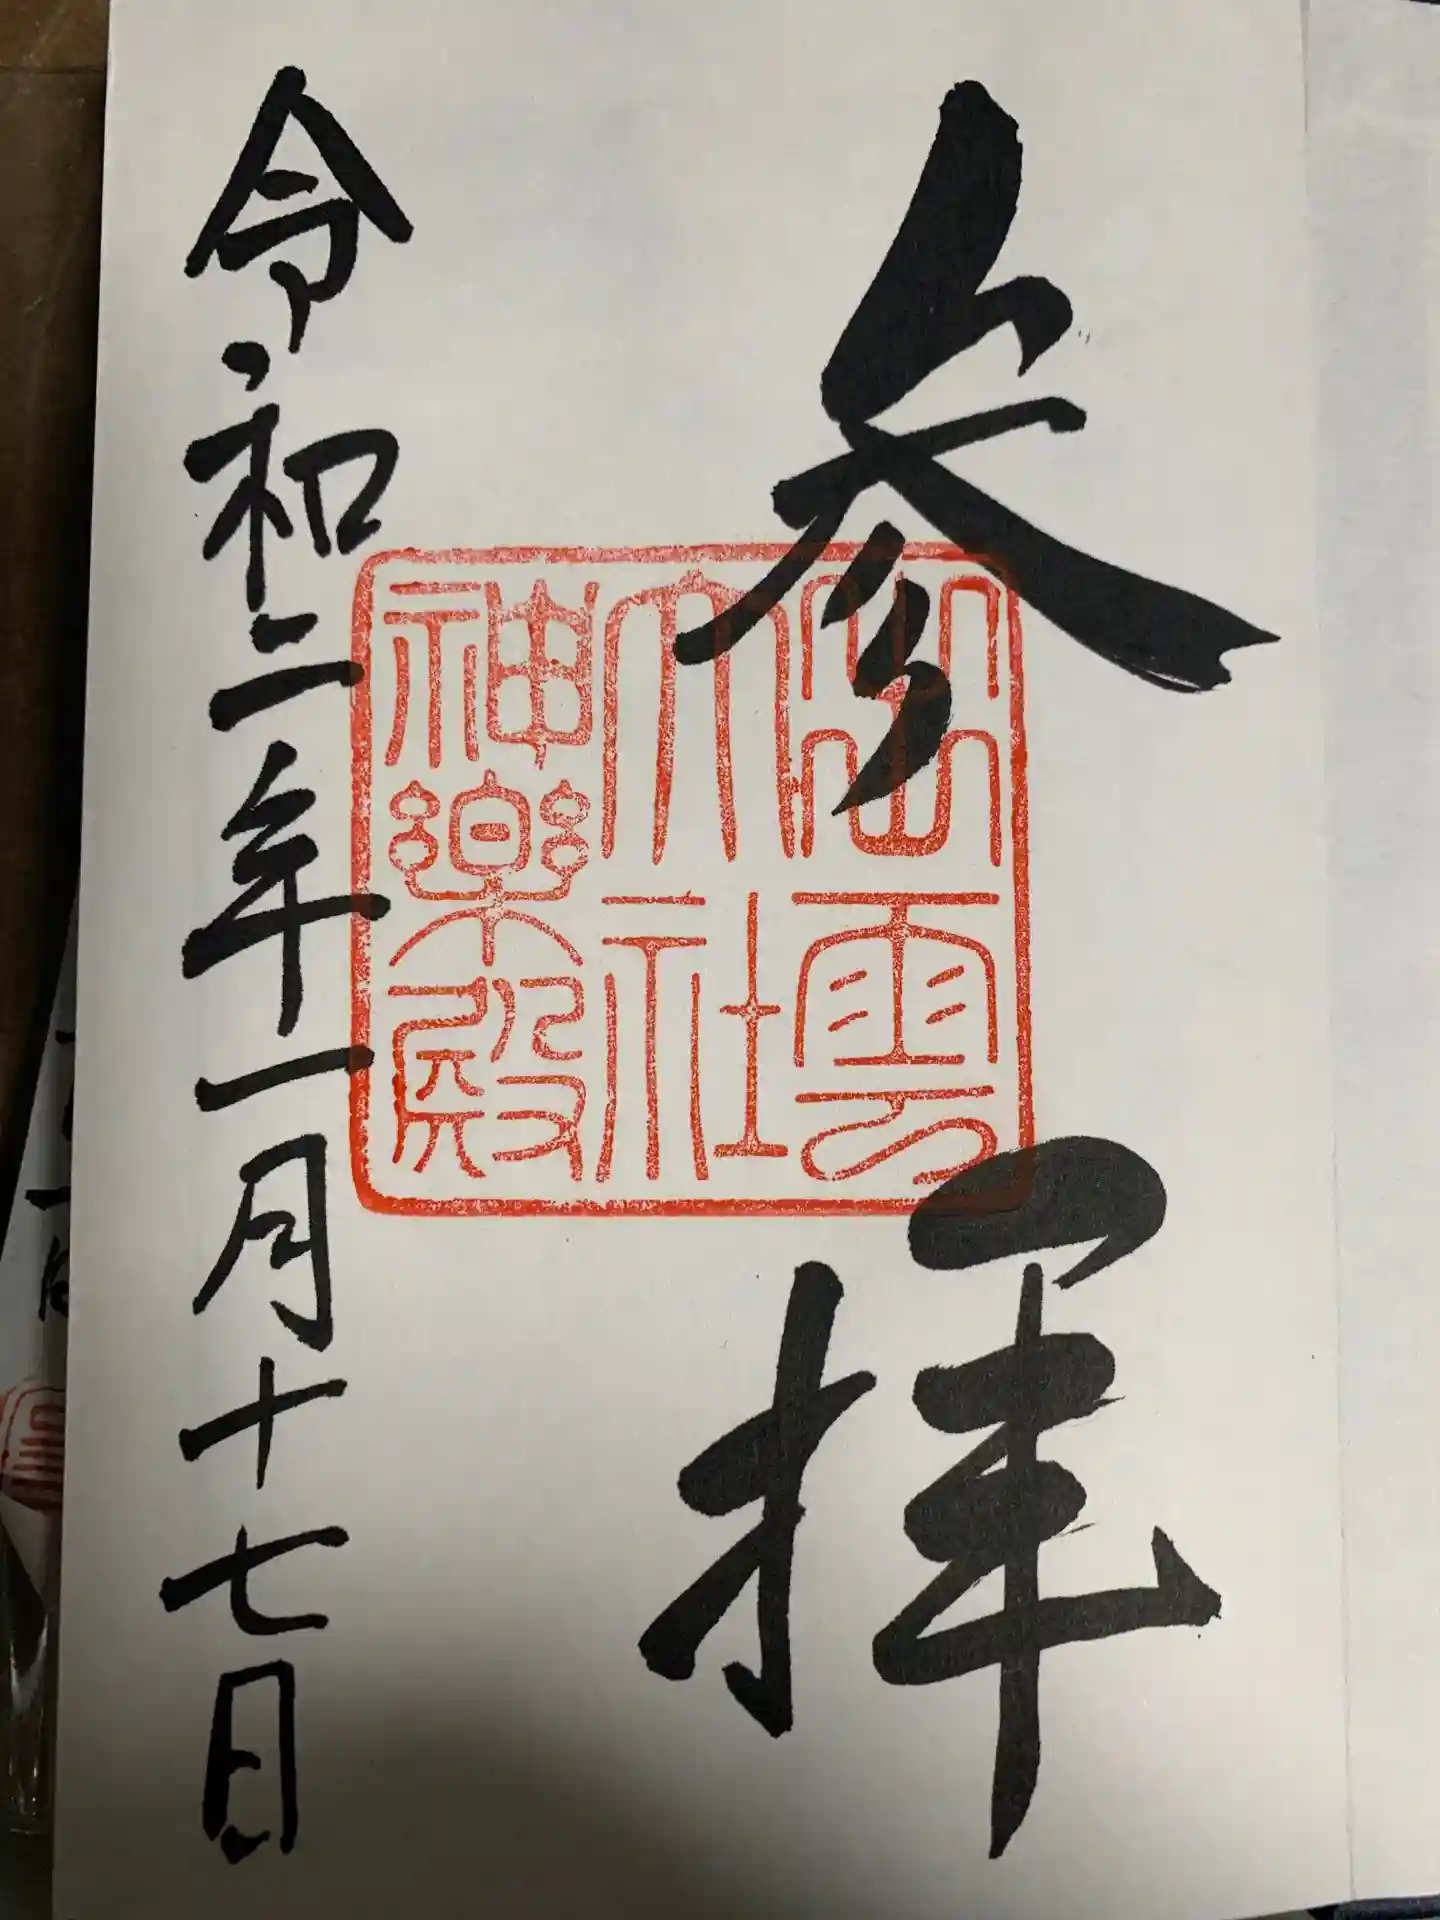 参拝
出雲大社神楽殿
令和二年一月十七日